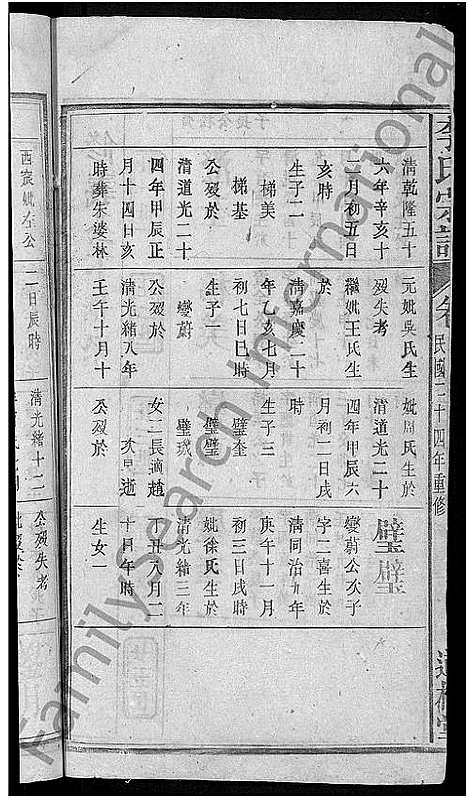 李氏宗譜 卷 民國二十四年重修
清乾隆五十
六年辛亥十
二月初五日
亥時
生子二
梯美
梯基
公歿於
清道光二十
四年甲辰正
月十四日亥
時葬朱婆林
元妣吳氏生
歿失考
繼妣王氏生
於
清嘉慶二十
年乙亥七月
初七日巳時
生子一
燮蔚
公歿於
清光緒八年
壬午十月十
妣周氏生於
清道光二十
四年甲辰六
月初二日戌
時
生子三
璧奎
璧璧
璧珹
女二長適趙
次早逝
公歿於
璧璧
燮蔚公次子
字二喜生於
清同治九年
庚午十一月
初三日戌時
妣徐氏生於
清光緒三年
丁丑八月二
十日午時
生女一
西家妣左公
二日辰時
清光緒十二
公歿失考
FamilySearch International